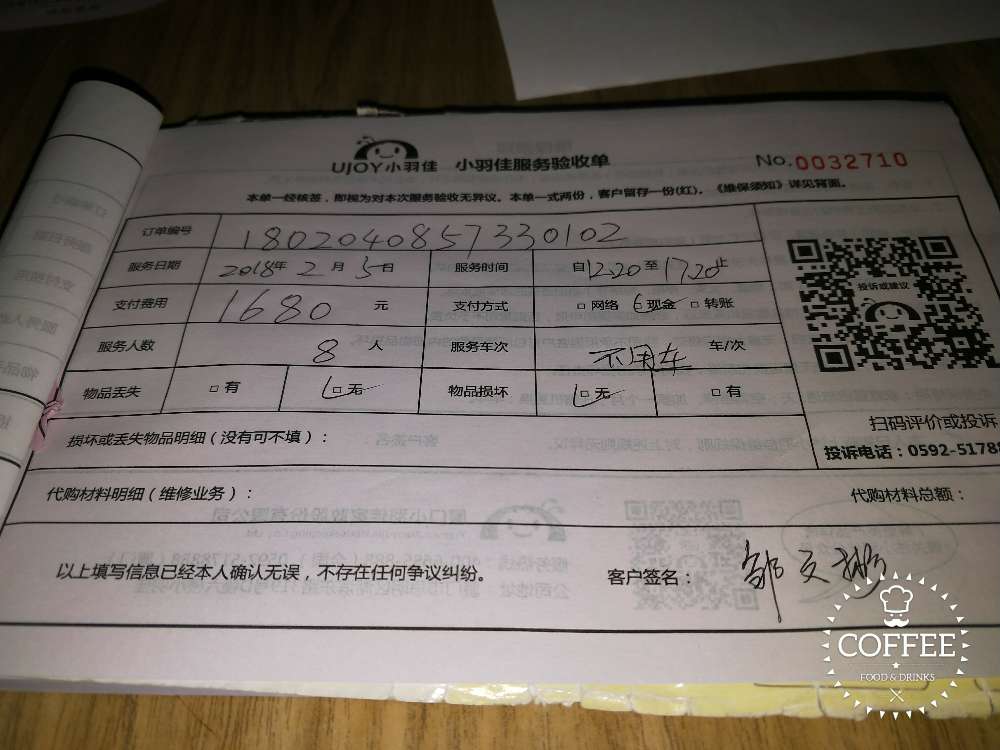 UJOY小羽佳 小羽佳服务验收单 No.0032710
本单一经核签，即视为对本次服务验收无异议。本单一式两份，客户留存一份(红)。《维保须知》详见背面。
订单编号 1802040857330102
服务日期 2018年2月5日 服务时间 自12.20至17.20止
支付费用 1680元 支付方式 □网络 □现金 □转账
服务人数 8人 服务车次 不用车 车/次
物品丢失 □有 □无 物品损坏 □无 □有
投诉或建议
扫码评价或投诉
投诉电话：0592-51788
损坏或丢失物品明细（没有可不填）：
代购材料明细（维修业务）： 代购材料总额：
以上填写信息已经本人确认无误，不存在任何争议纠纷。 客户签名：
COFFEE
FOOD & DRINKS